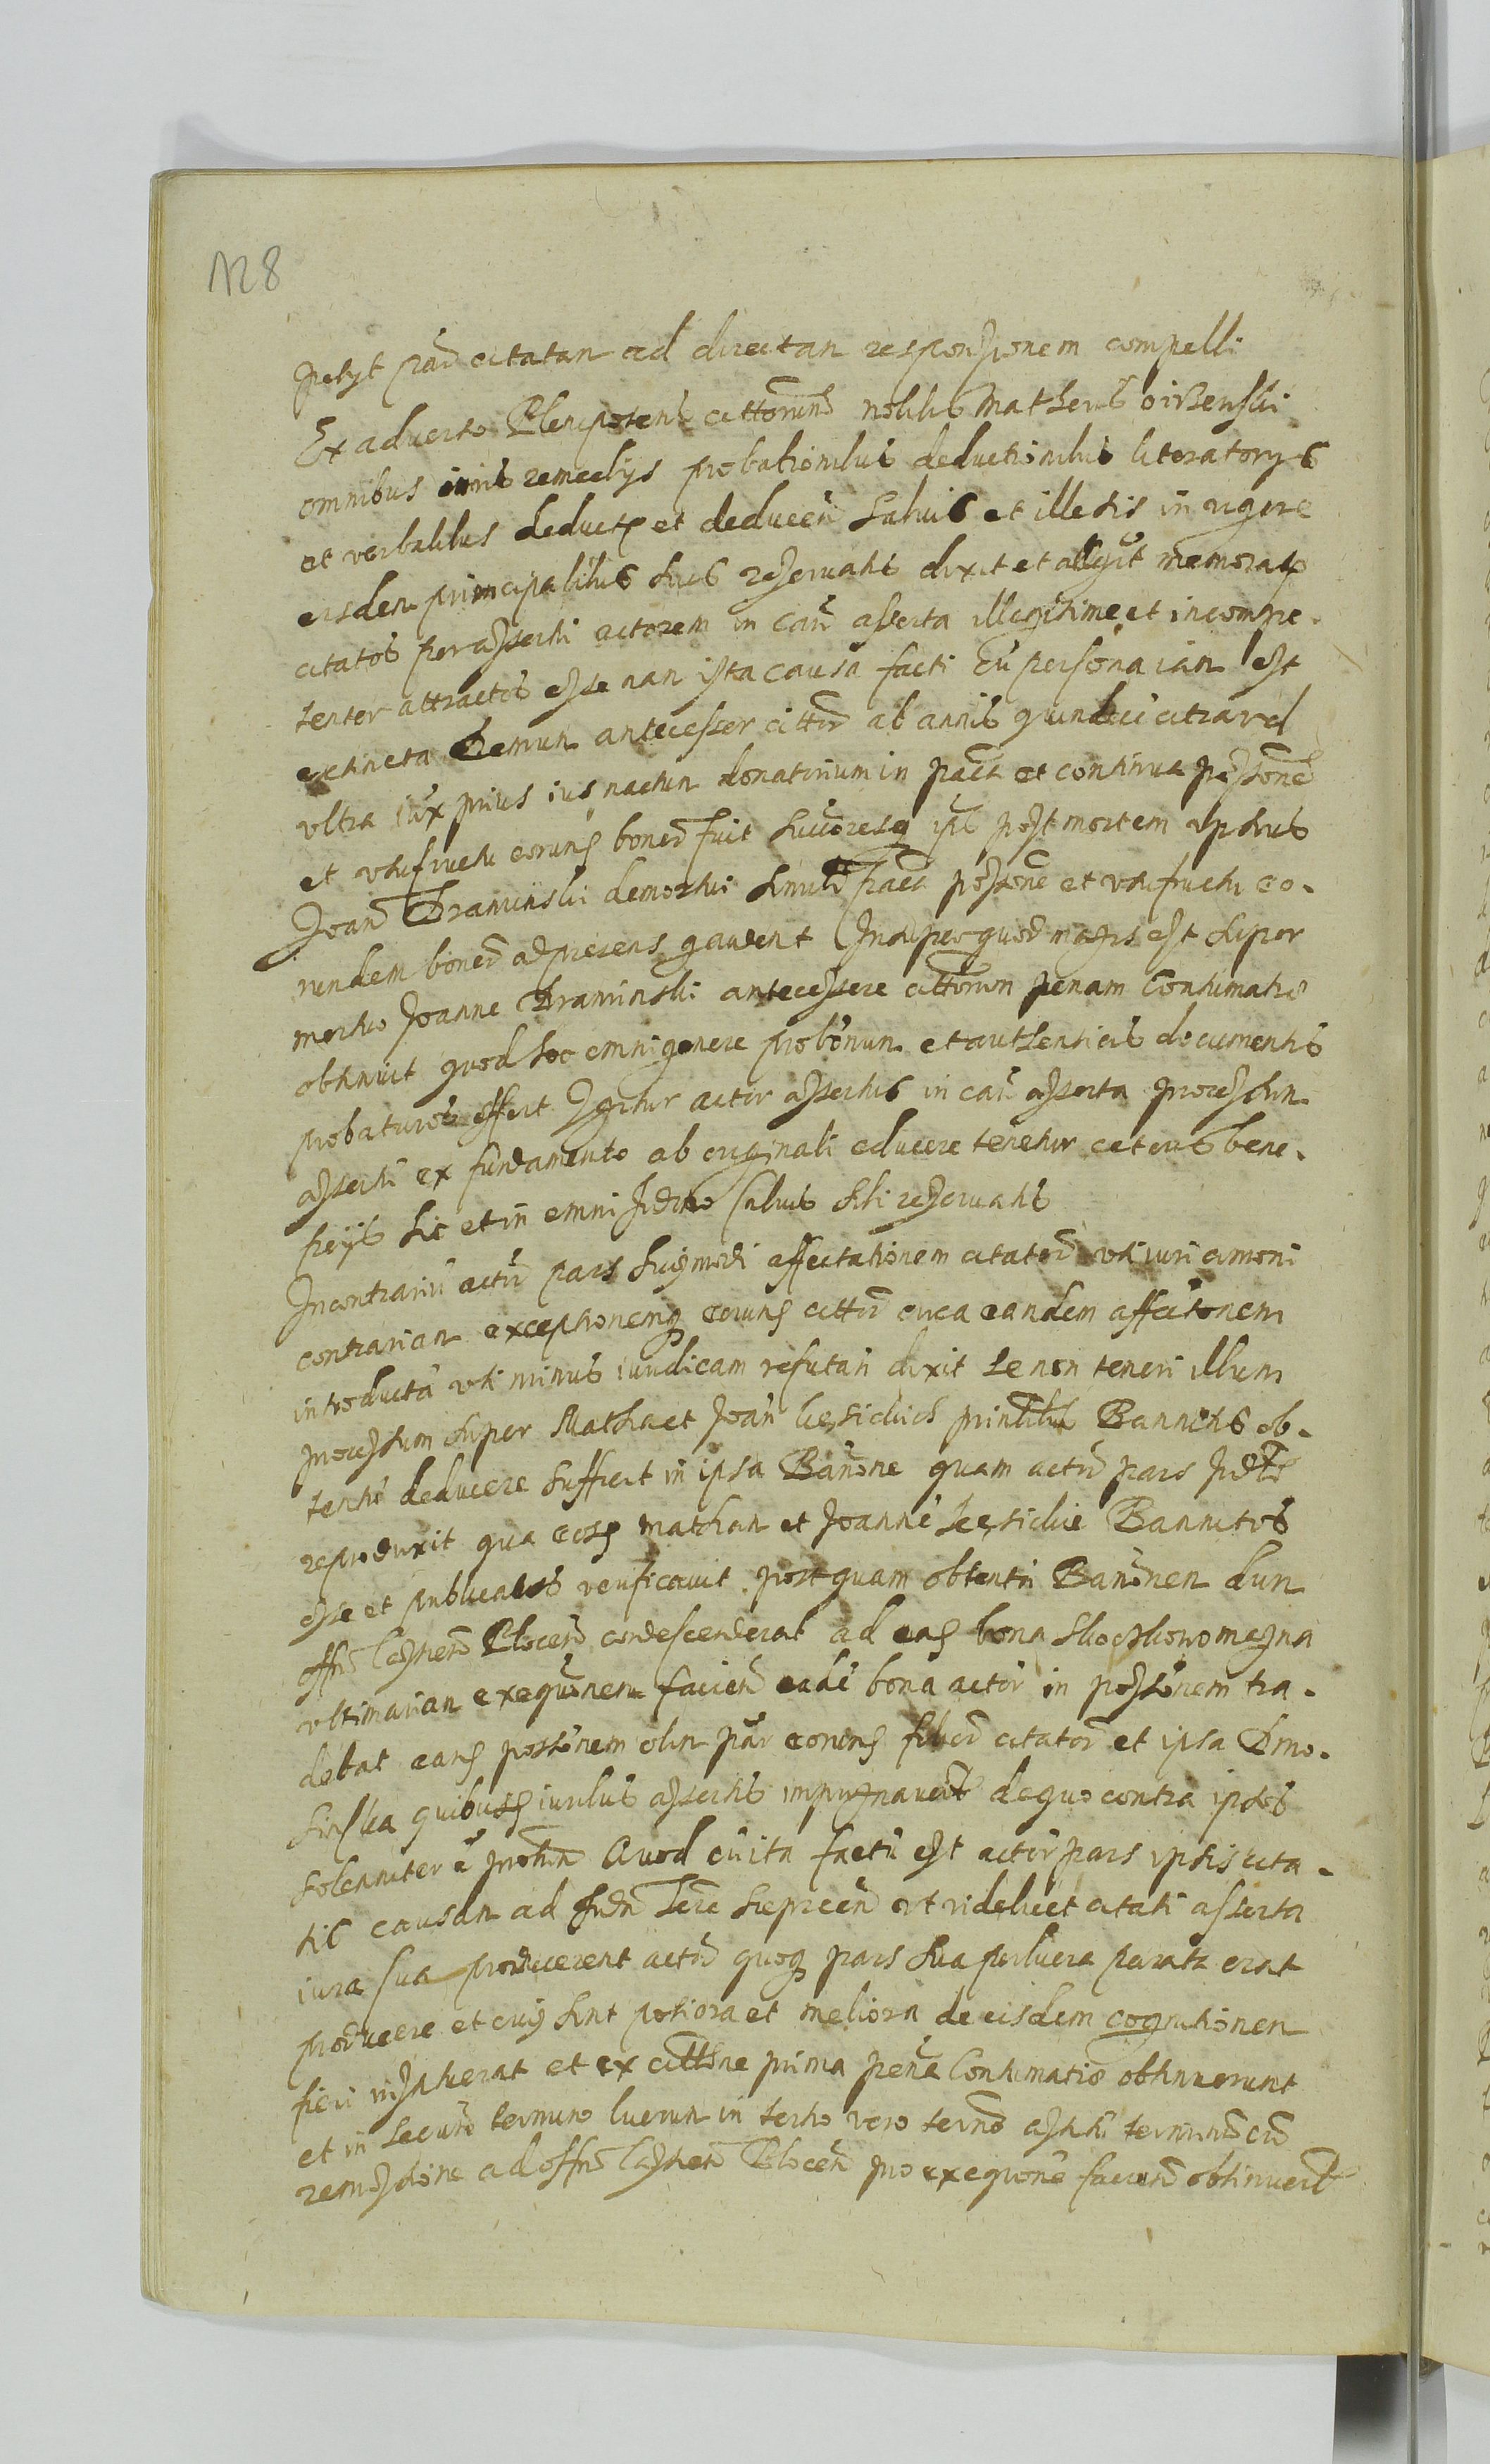 128
petyt citatam ad directam responsionem compelli
Ex adverso Plenipotens cittorum nobilis Matheus
omnibus iuris remedijs probationibus deductionibus literatorys
et verbalibus deduct et deducen salvis et illesis in vigore
eisdem principalibus suis reservatis dixit et allegit memorat
citatos per asserti actorem in cau asserta illegitime et incompe-
tenter attractos esse nam ista causa facti cu persona iam est
extincta demum antecessor cittor ab annis quindeci citra vel
ultra iux prius ius nactum donatorium in paca et continua possone
et usufructu eorund bonor fuit succoresq ipi post mortem ipsius
Joan Draminski demortui simili paca possone et usufructu eo-
rundem bonor ad presens gaudent Insuper quod magis est super
mortuo Joanne Draminski antecessore cittorum penam Contumatie
obtinuit quod hoc omni genere probonum et authenticis documentis
probaturos offert Igitur actor assertus in cau asserta processum
asserti ex fundamento ab originali educere tenetur ceteris bene-
ficijs hic et in omni Judicio salvis sibi reservatis
In contrariu actor pars huiusmodi affectationem citator uti iuri omni
contrariam exceptionemq eorund cittor circa eandem affectonem
introducta uti minus iuridicam refutan dixit se non teneri illum
processum super Mathia et Joan printibus Bannitis ob-
tentu deducere sufficit in ipsa Banone quam actor pars
reproduxit qua eosd mathiam et Joanne Bannitos
esse et publicatos verificavit postquam obtentu Banonem dum
offm Castren Plocen condescenderat ad ead bona magna
ultimariam exequonem facien eade bona actor in possonem tra-
debat eand possonem olim par eorund citator et ipsa
quibusd iuribus assertis impugnaverut de quo contra ipsos
solenniter e Quod cu ita factu est actor pars ipsis cita-
tis causam ad Terre ut videlicet citati asserta
iura sua producerent actor quoq pars sua parata erat
producere et cuius sint potiora et meliora de eisdem cognitionem
fieri institerat et ex cittone prima pena Contumatie obtinuerunt
et in secundo termino lucrum in tertio vero termo
remissione ad offm Castren Plocen pro exequone facien obtinuerut